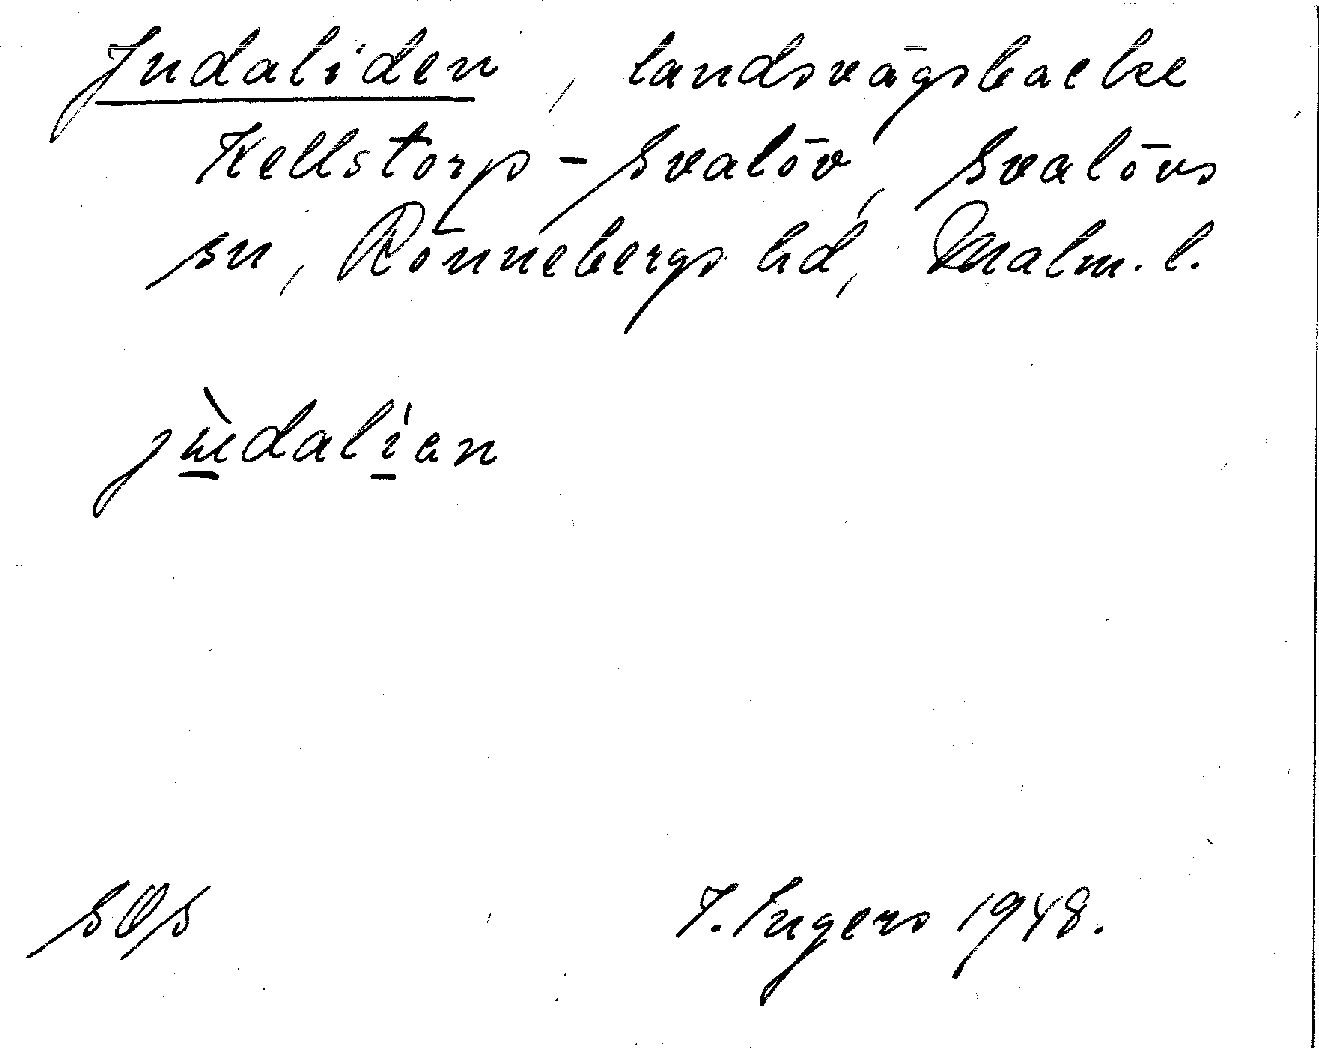 Judaliden, landsvägsbacke
Kellstorp - Svalöv, Svalövs
sn, Rönnebergs hd, Malm. l.
jùdalían
SOS
I. Ingers 1948.